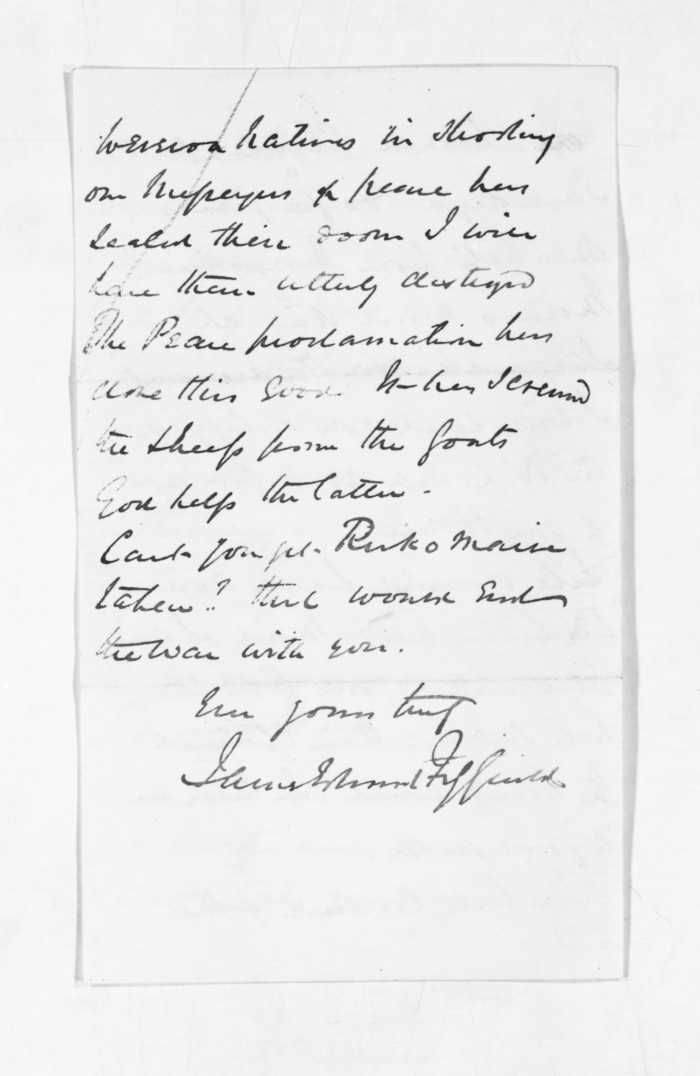 Wereroa Natives in shooting
our Messengers of peace has
sealed their doom I will
have them utterly destroyed
The Peace proclamation has
done this Good. It has screened
the sheep from the Goats
God help the latter.
Can't you get Rewi or Maire
taken? that would End
the War with you.
Ever yours truly
James Edward FitzGerald